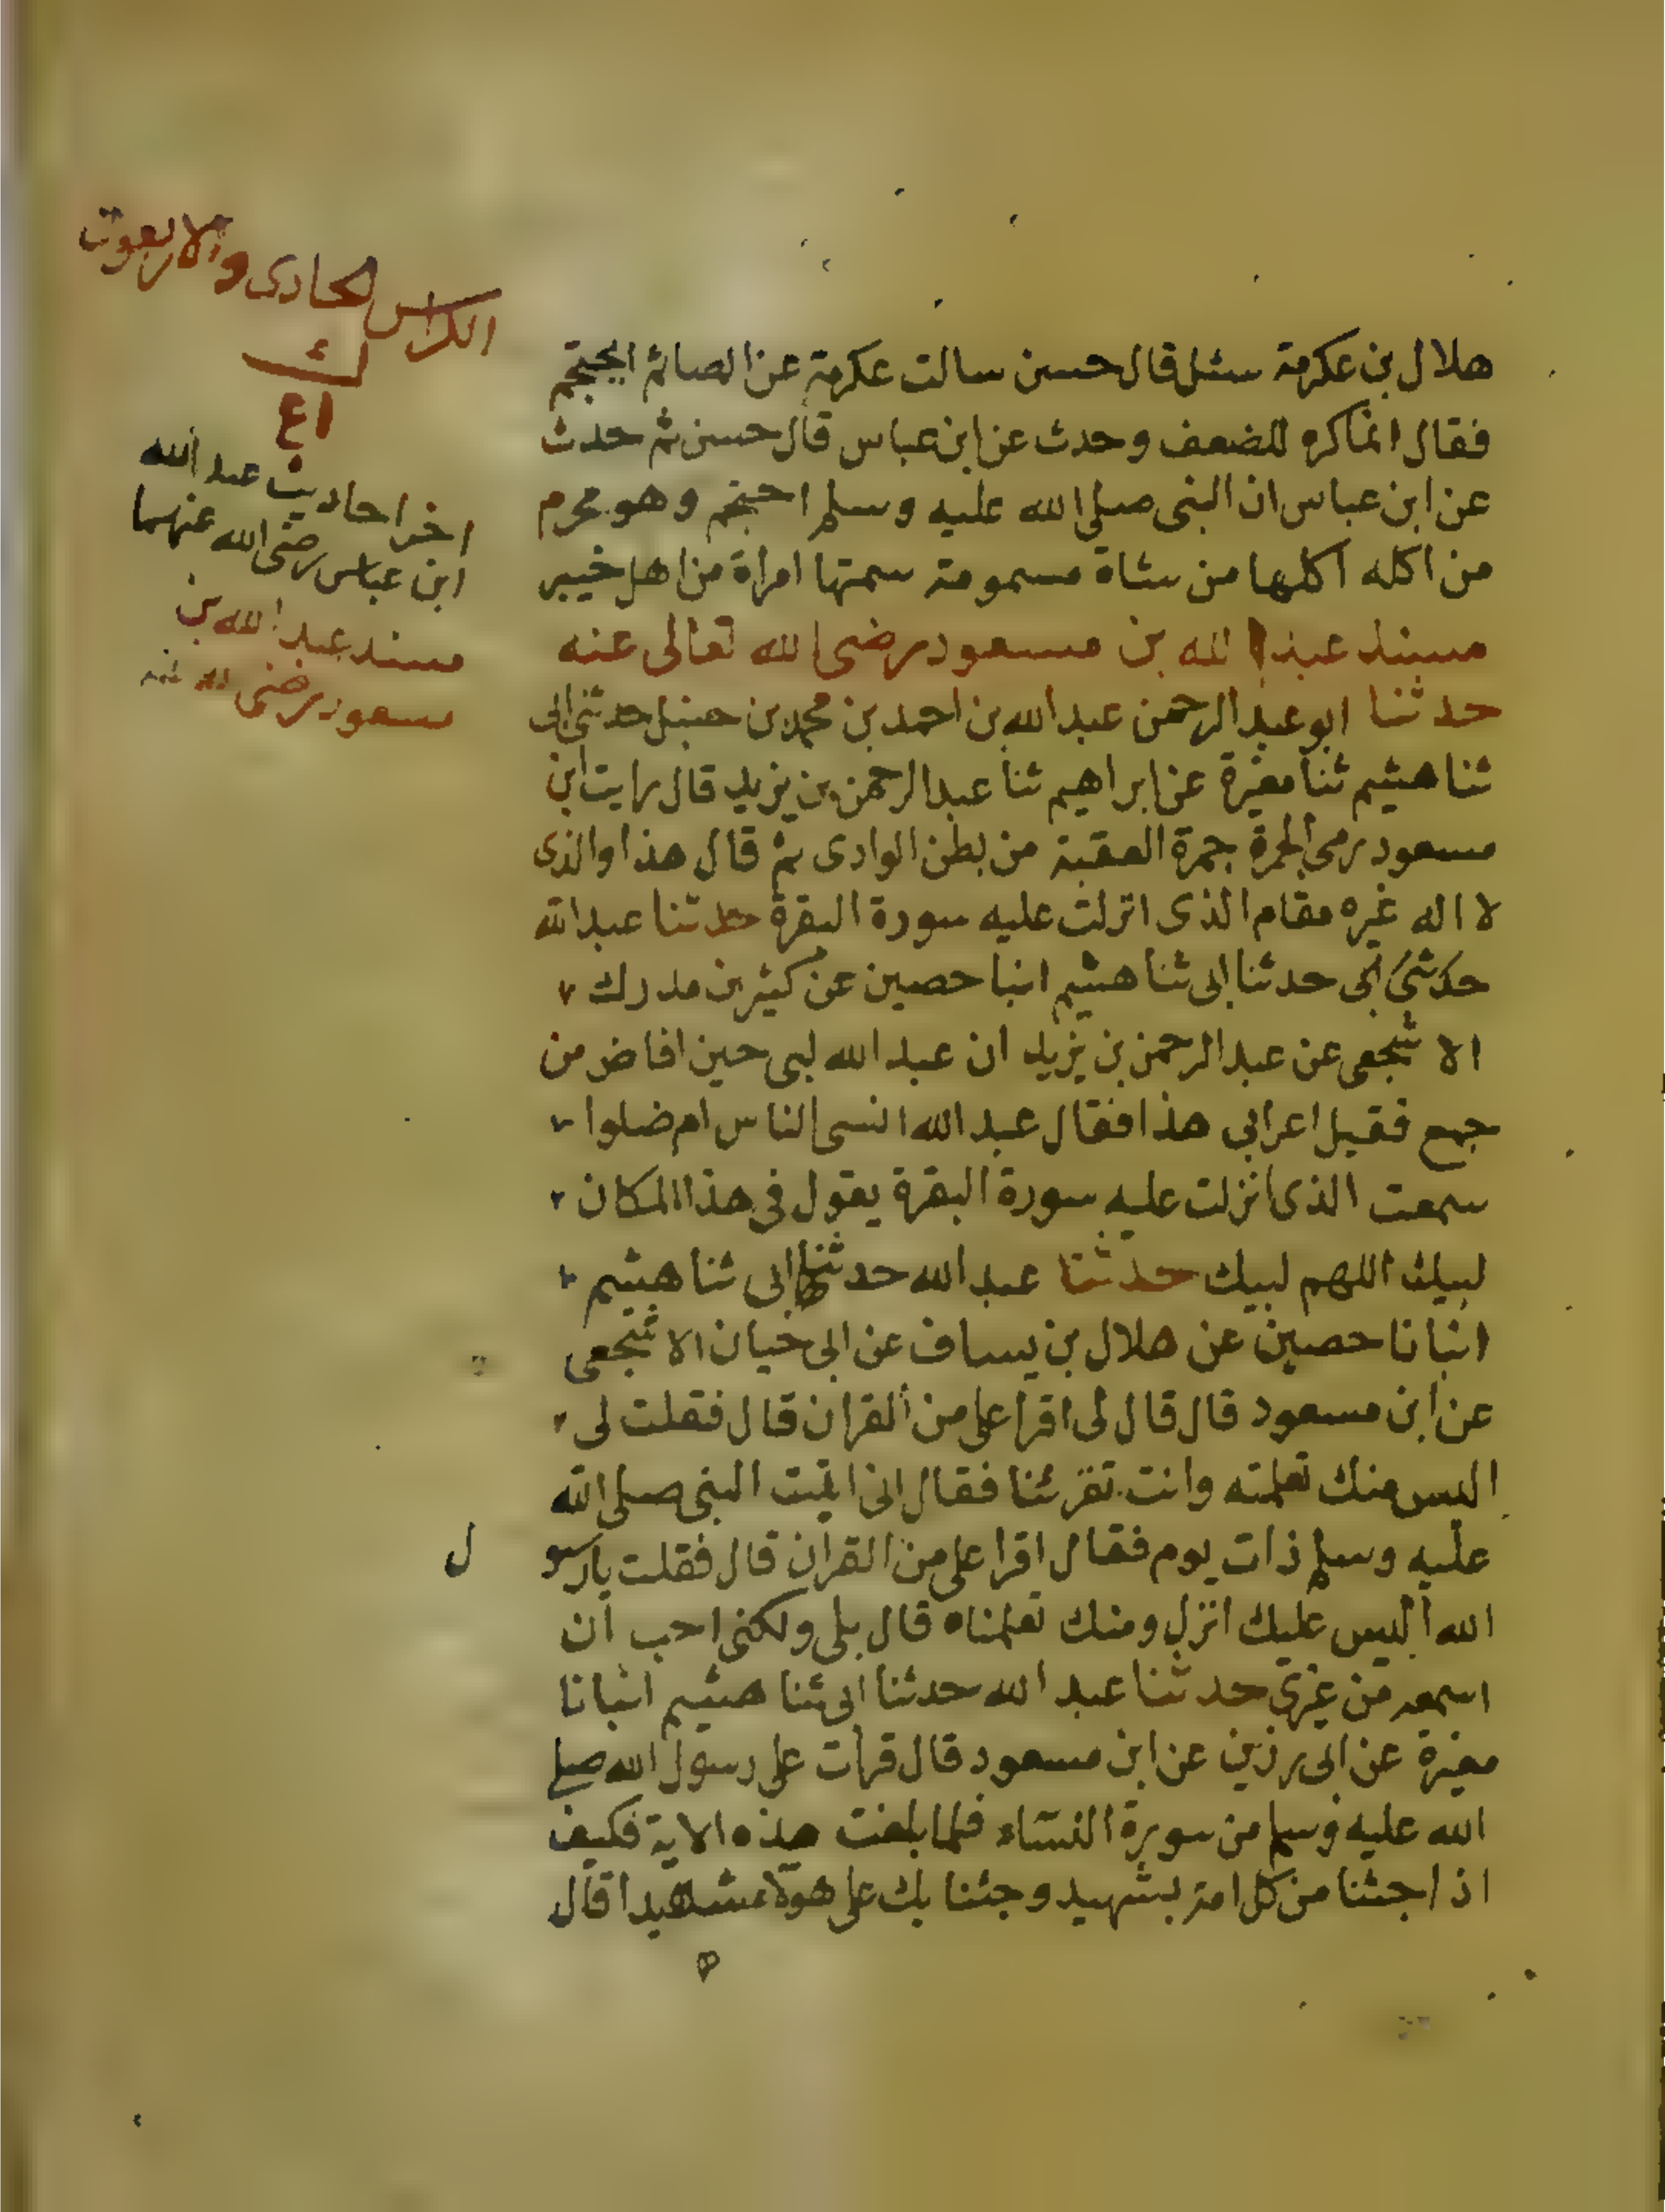 الكراس الحادى والاربعون
ك
٤١
اخر احاديث عبد الله
ابن عباس رضى الله عنهما
مسند عبد الله بن
مسعود رضى الله عنه
هلال بن عكرمة سئل قال حسن سالت عكرمة عن الصائم ايحتجم
فقال انما كره للضعف وحدث عن ابن عباس قال حسن ثم حدث
عن ابن عباس ان النبى صلى الله عليه وسلم احتجم وهو محرم
من اكله اكلها من شاة مسمومة سمتها امراة من اهل خيبر
مسند عبد الله بن مسعود رضى الله تعالى عنه
حدثنا ابو عبد الرحمن عبد الله بن احمد بن محمد بن حنبل حدثنى ابى
ثنا هشيم ثنا مغيرة عن ابراهيم ثنا عبد الرحمن بن يزيد قال رايت ابن
مسعود رمى الجمرة جمرة العقبة من بطن الوادى ثم قال هذا والذى
لا اله غيره مقام الذى انزلت عليه سورة البقرة حدثنا عبد الله
حدثنى ابى حدثنا ابى ثنا هشيم انبا حصين عن كثير بن مدرك
الاشجعى عن عبد الرحمن بن يزيد ان عبد الله لبى حين افاض من
جمع فقيل اعرابى هذا فقال عبد الله انسى الناس ام ضلوا
سمعت الذى انزلت عليه سورة البقرة يقول فى هذا المكان
لبيك اللهم لبيك حدثنا عبد الله حدثنا ابى ثنا هشيم
انبانا حصين عن هلال بن يساف عن ابى حيان الاشجعى
عن ابن مسعود قال قال لى اقرا على من القران قال فقلت لى
اليس منك تعلمته وانت تقرئنا فقال انى اتيت النبى صلى الله
عليه وسلم ذات يوم فقال اقرا على من القران قال فقلت يا رسول
الله اليس عليك انزل ومنك تعلمناه قال بلى ولكنى احب ان
اسمعه من غيرى حدثنا عبد الله حدثنا ابى ثنا هشيم انبانا
مغيرة عن ابى رزين عن ابن مسعود قال قرات على رسول الله صلى
الله عليه وسلم من سورة النساء فلما بلغت هذه الاية فكيف
اذا جئنا من كل امة بشهيد وجئنا بك على هولاء شهيدا قال